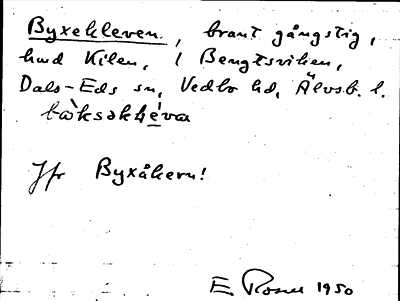 Byxekleven, brant gångstig,
hmd Kilen, i Bengtsviken,
Dals-Eds sn, Vedbo hd, Älvsb. l.
bàksəkḷéva
Jfr Byxåkern!
E. Rosell 1950